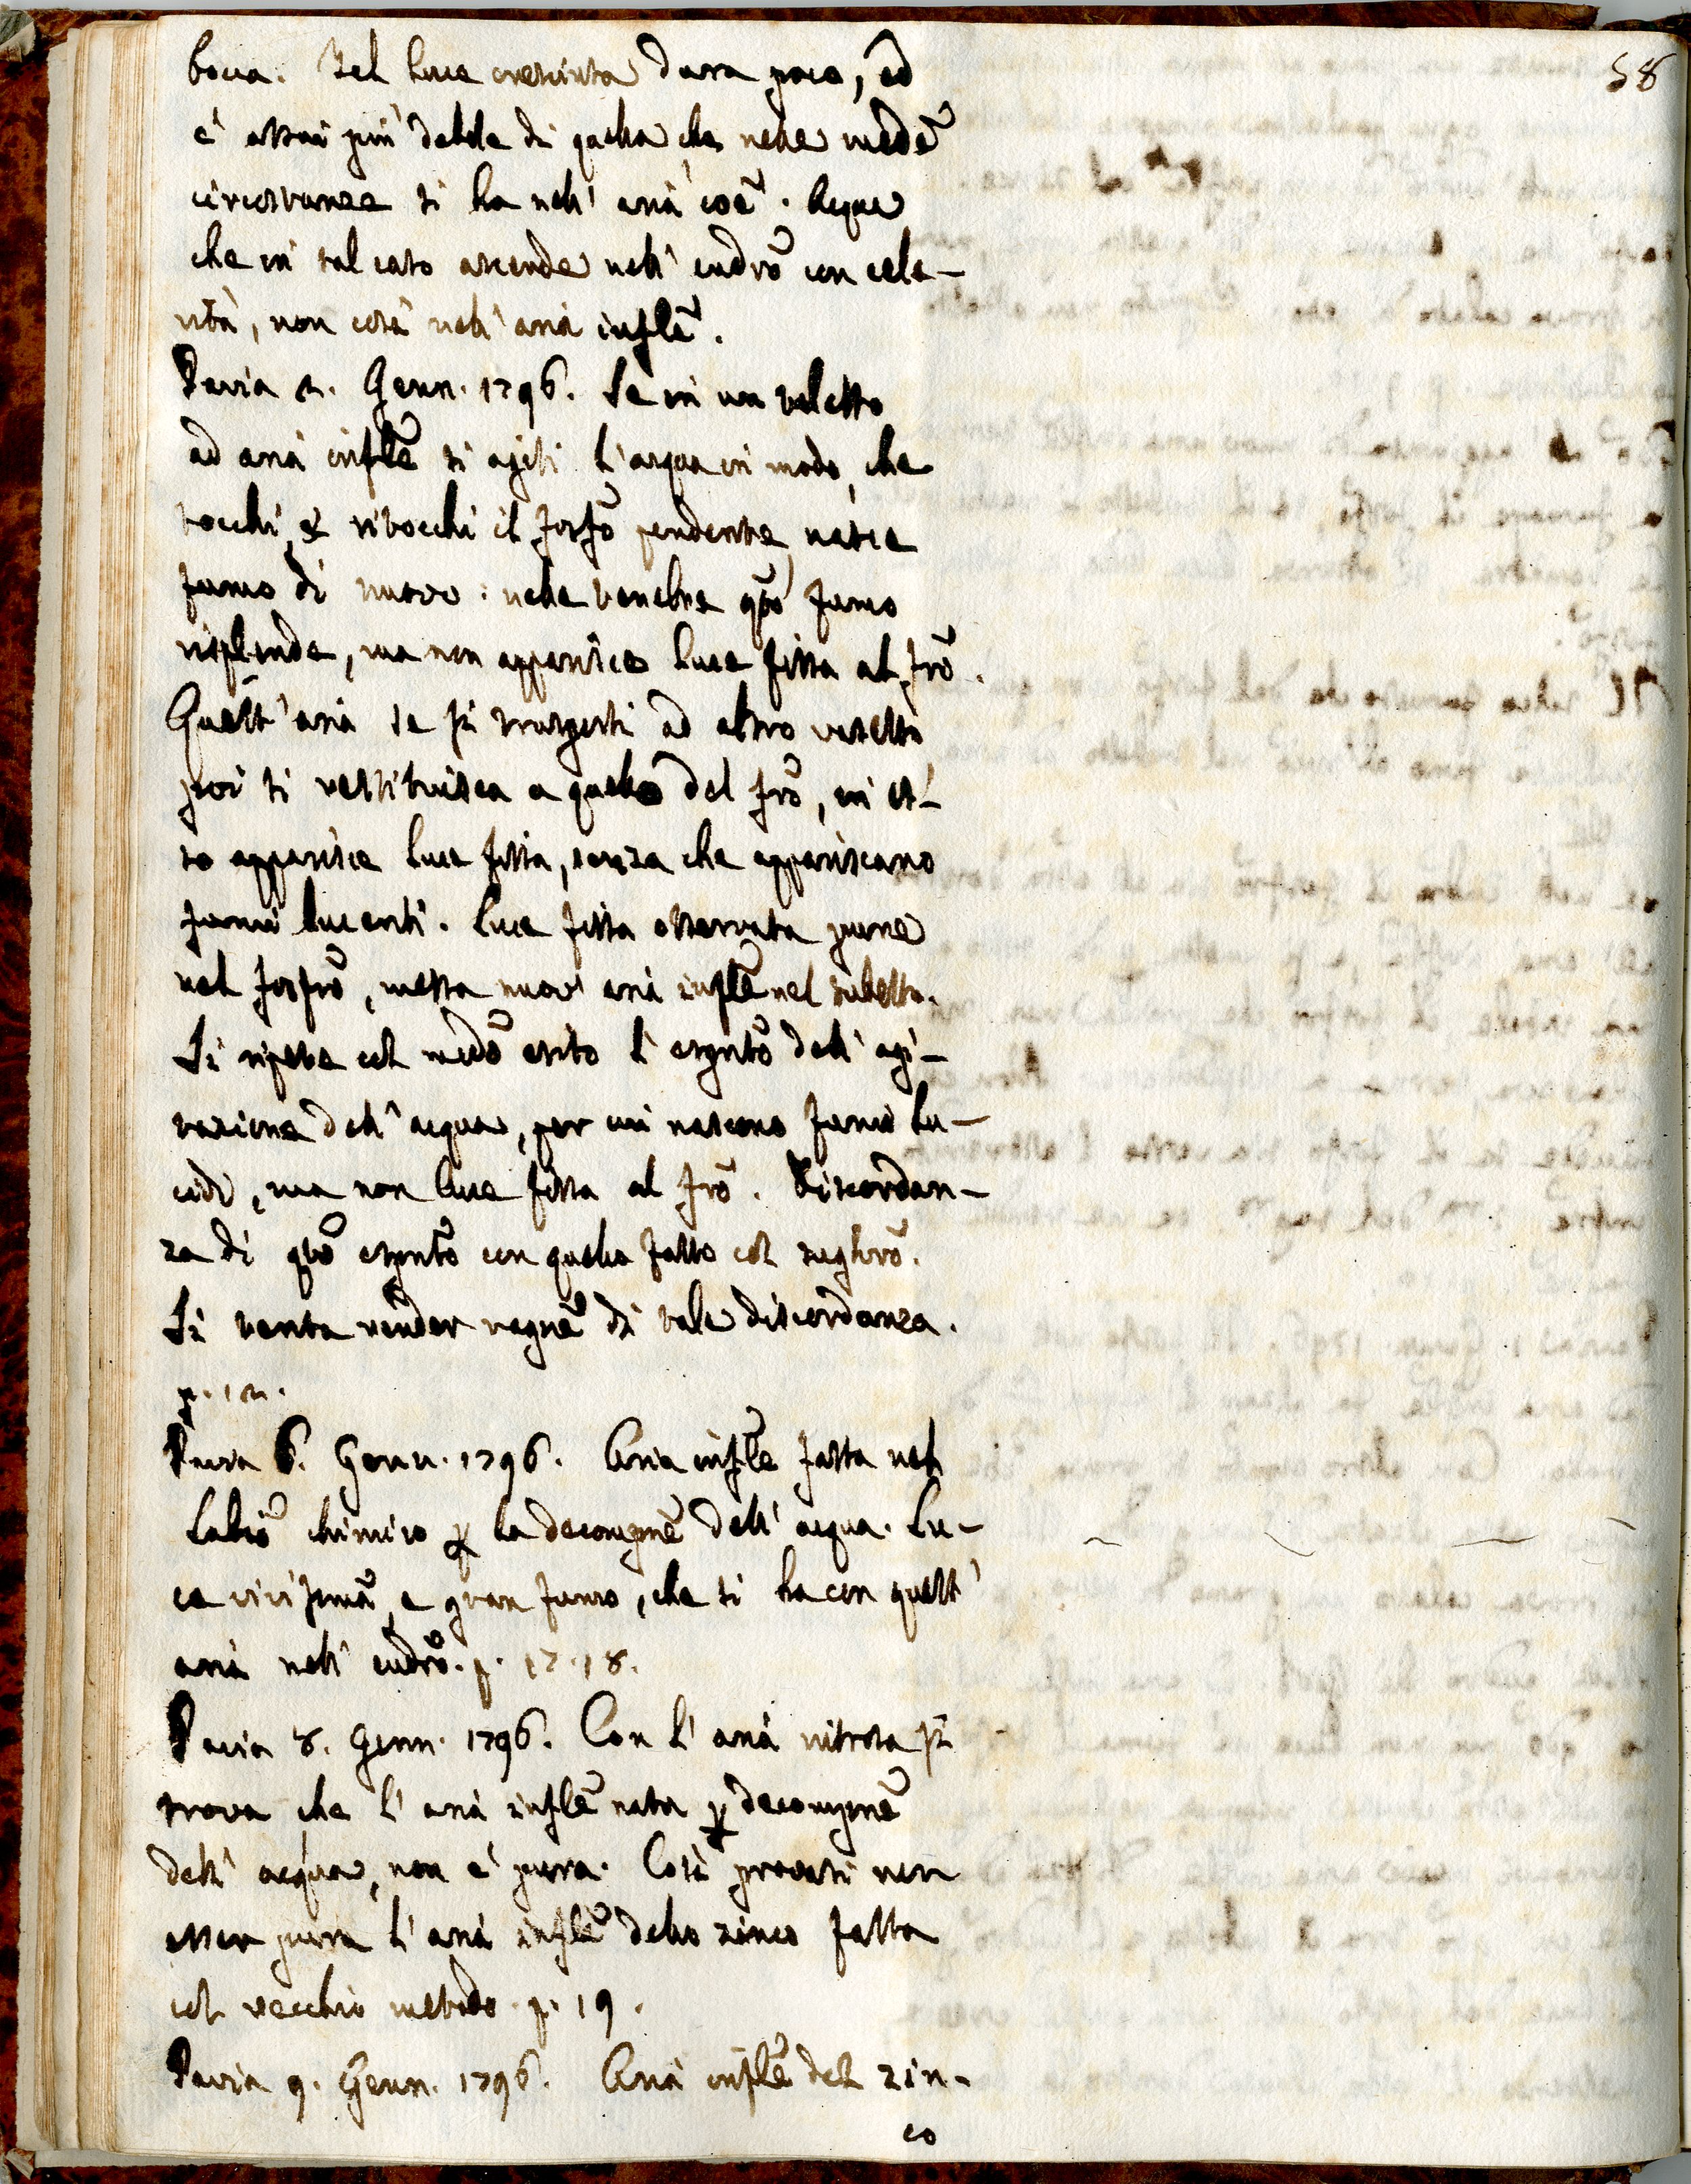 58
bocca. Tal luce cresciuta dura poco, ed
è assai più debole di quella che nelle medē
circostanze si ha nell' aria coē. Acqua
che in tal caso ascende nell' eudrō con cele-
rità, non così nell' aria inflē.
Pavia 2. Genn. 1796. Se in un
ad aria inflē si agiti l'acqua in modo, che
tocchi, e ritocchi il fosfō pendente, nasce
fumo di nuovo: nelle tenebre qto fumo
risplende, ma non apparisce luce fissa al frō.
Quest' aria se si trasporti ad altro vasetto,
poi si restituisca a quello del frō, in es-
so apparisce luce fissa, senza che appariscano
fumi lucenti. Luce fissa osservata pure
nel fosfrō, messa nuov' aria inflē nel tubetto.
Si ripete col medō esito l' esprtō dell' agi-
tazione dell' acqua, per cui nascono fumi lu-
cidi, ma non luce fissa al frō. Discordan-
za di qto esprtō con quello fatto col sugherō.
Si tenta render ragnē di tale discordanza.
p. 12.
Pavia 6. Genn. 1796. Aria inflē fatta nel
Labrō chimico p la decompnē dell' acqua. Lu-
ce vivissmā, e gran fumo, che si ha con quest'
aria nell' eudrō. p. 17. 18.
Pavia 8. Genn. 1796. Con l' aria nitrosa si
trova che l' aria inflē nata p decompnē
dell' acqua, non è pura. Così provasi non
esser pura l' aria inflē dello zinco fatta
col vecchio metodo. p. 19.
Pavia 9. Genn. 1796. Aria inflē del zin-
co